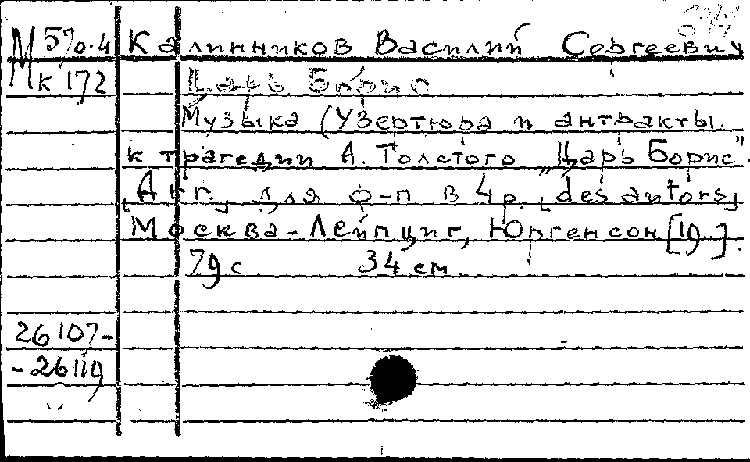 М 570.4 Калинников Василий Сергеевич
К 172 Царь Борис
Музыка (Увертюра и антракты
к трагедии А. Толстого „Царь Борис".
[Арг., для ф-п в 4 р. [des autors]
Москва-Лейпциг, Юргенсон [19 ].
79 с 34 см
26107-
-26119